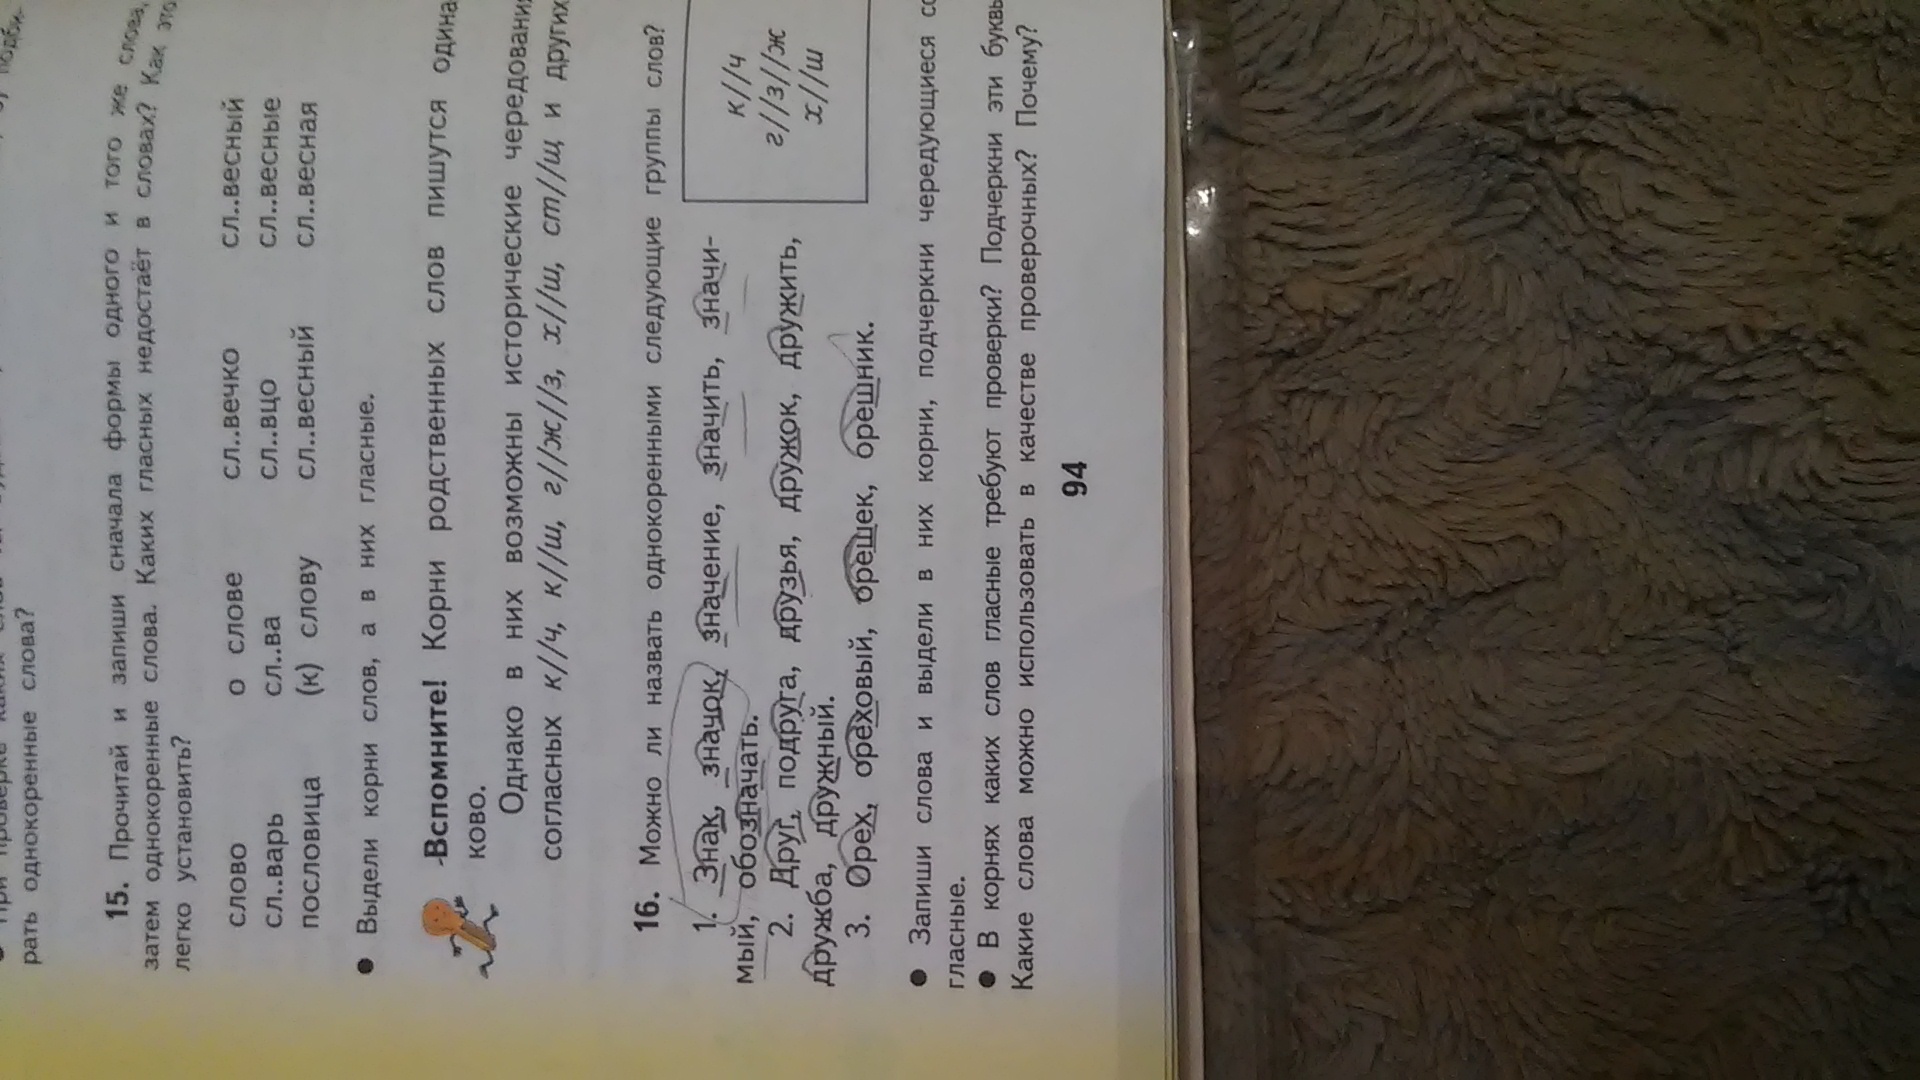 рать однокоренные слова?
15. Прочитай и запиши сначала формы одного и того же слова,
затем однокоренные слова. Каких гласных недостаёт в словах? Как это
легко установить?
слово о слове сл..вечко сл..весный
сл..варь сл..ва сл..вцо сл..весные
пословица (к) слову сл..весный сл..весная
● Выдели корни слов, а в них гласные.
Вспомните! Корни родственных слов пишутся одина-
ково.
Однако в них возможны исторические чередования
согласных к//ч, к//ш, г//ж//з, х//ш, ст//щ и других
16. Можно ли назвать однокоренными следующие группы слов?
1. Знак, значок, значение, значить, значи-
мый, обозначать.
2. Друг, подруга, друзья, дружок, дружить,
дружба, дружный.
3. Орех, ореховый, орешек, орешник.
к//ч
г//з//ж
х//ш
● Запиши слова и выдели в них корни, подчеркни чередующиеся со
гласные.
● В корнях каких слов гласные требуют проверки? Подчеркни эти буквы
Какие слова можно использовать в качестве проверочных? Почему?
94